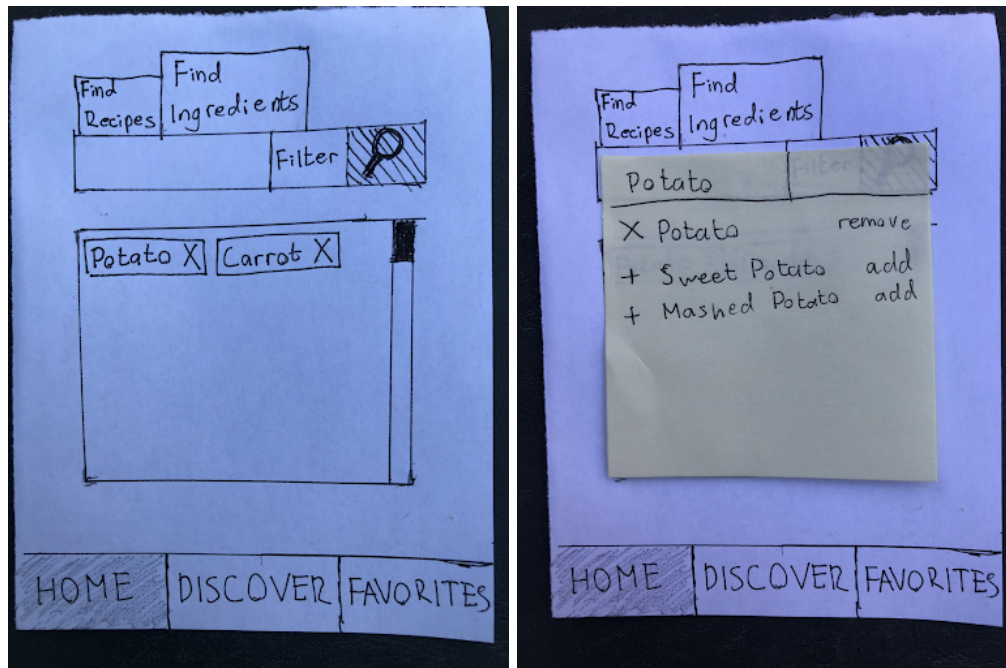 Find
Recipes
Find
Ingredients
Filter
Potato X
Carrot X
HOME
DISCOVER
FAVORITES
Find
Recipes
Find
Ingredients
Filter
Potato
X Potato remove
+ Sweet Potato add
+ Mashed Potato add
HOME
DISCOVER
FAVORITES